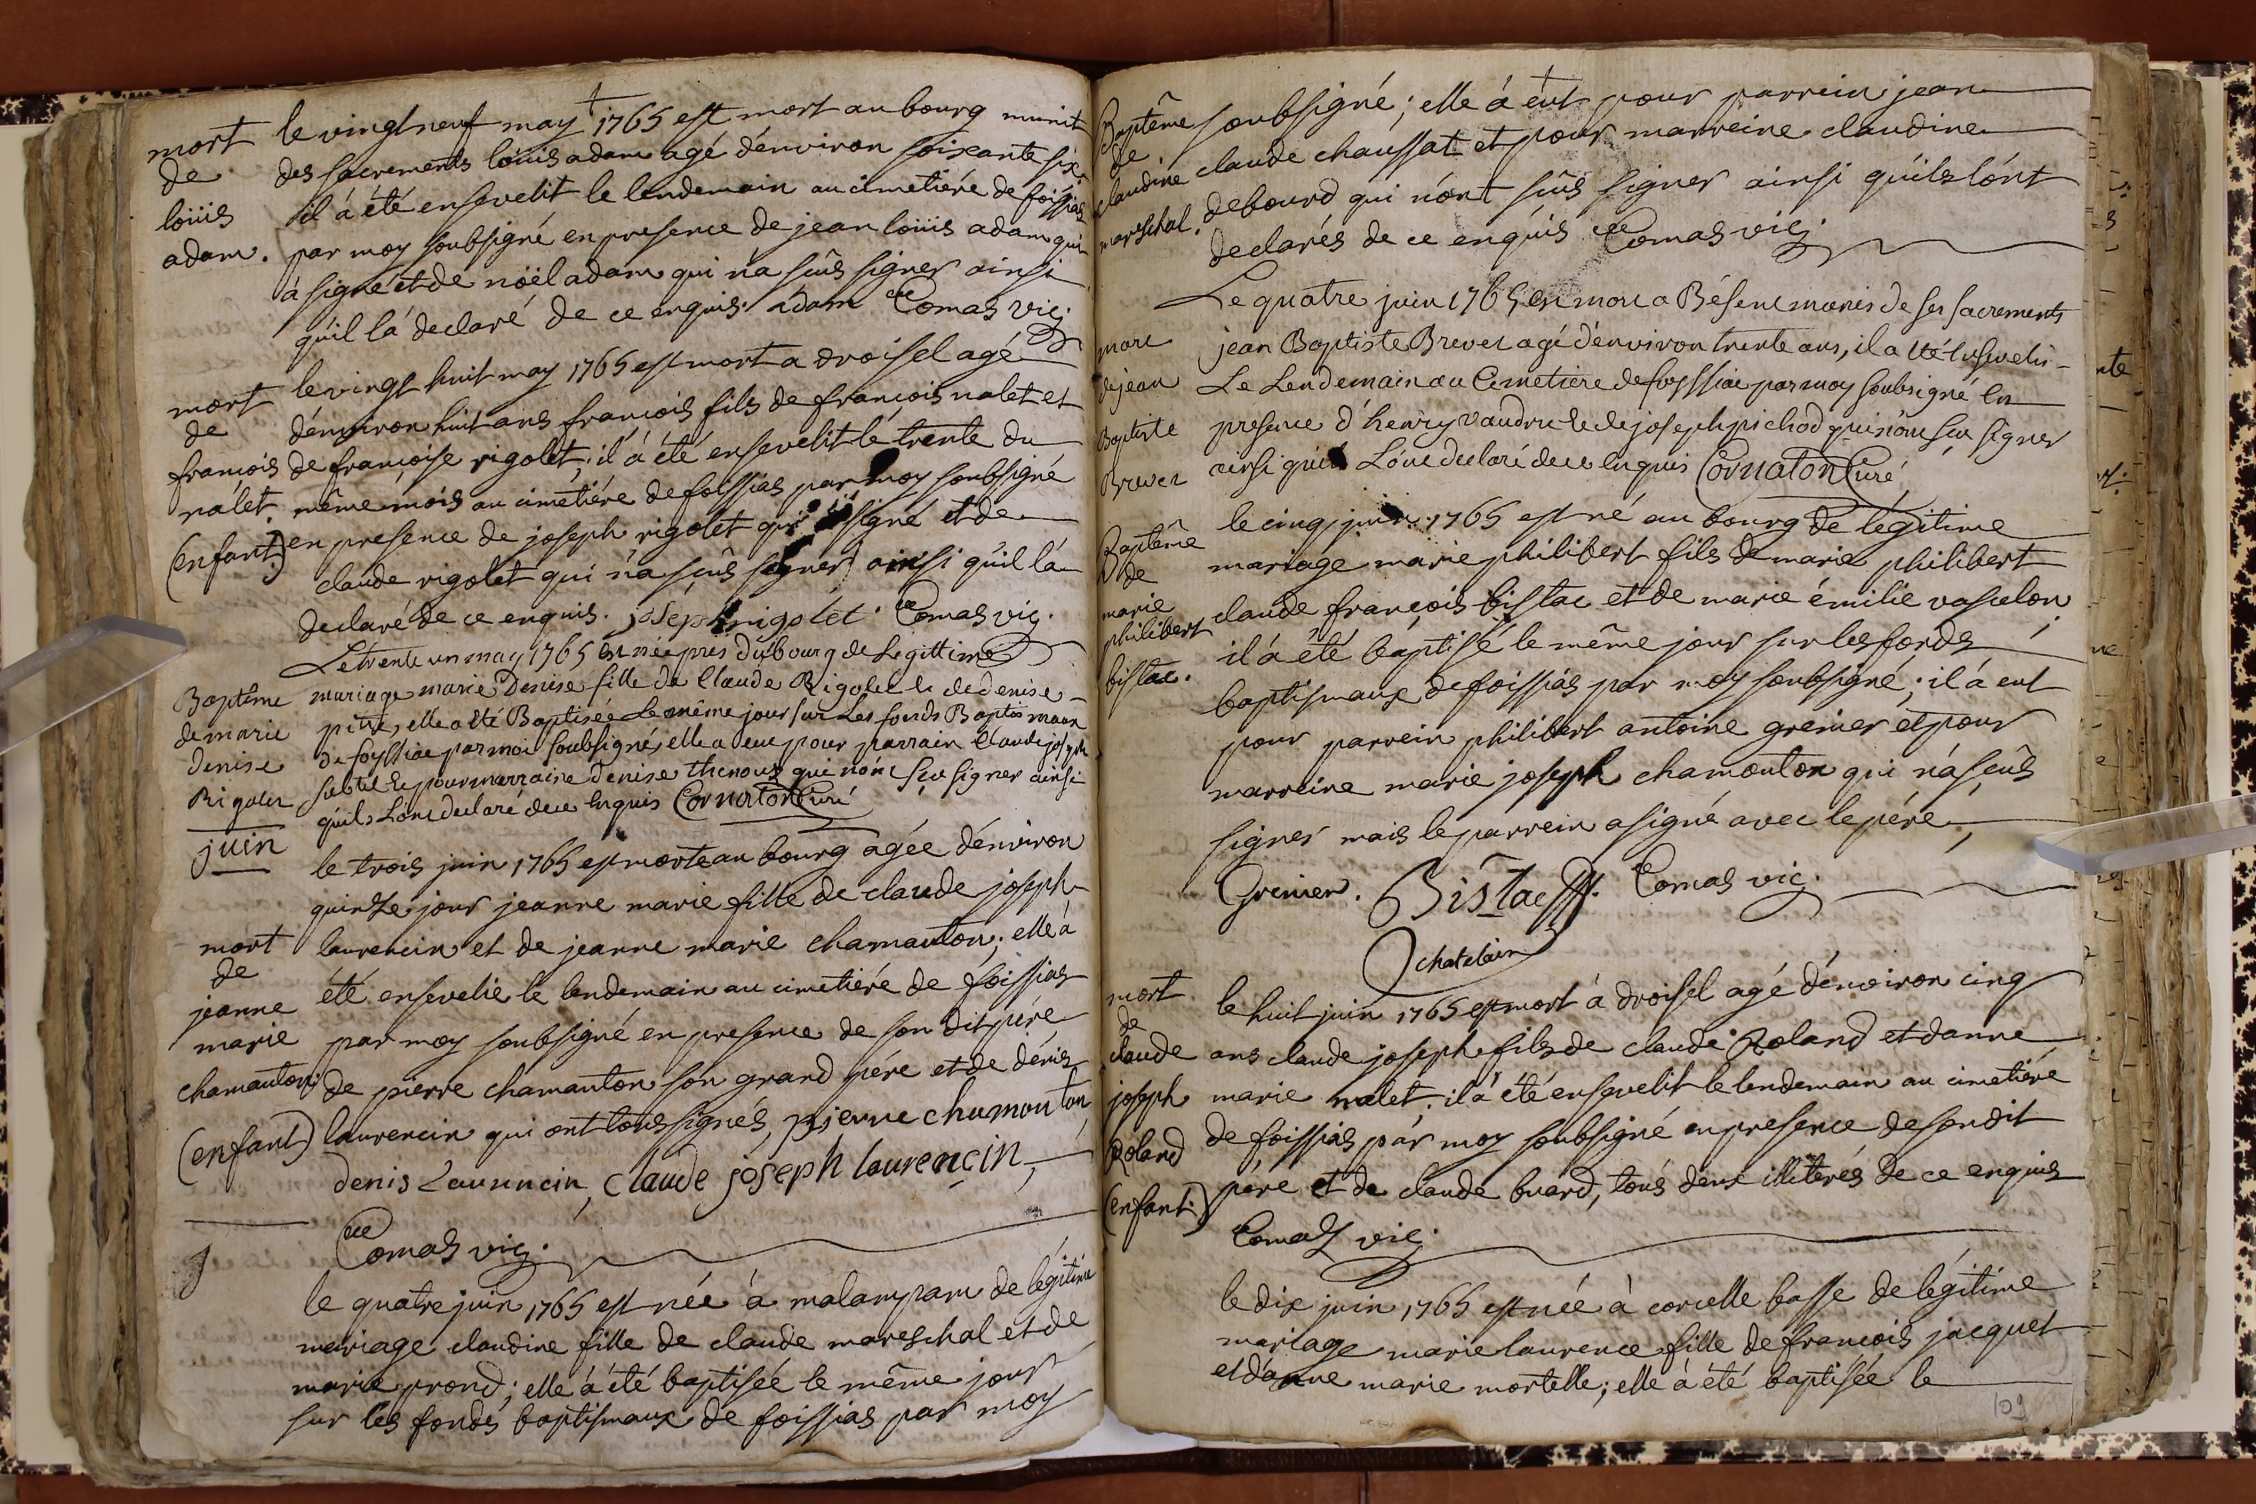 mort
de
loüis
adam.
le vingt neuf may 1765 est mort au bourg munit
des sacrements loüis adam agé dénviron soixante six
il á été ensevelit le lendemain au cimetiére de foissias
par moy soubsigné en presence de jean loüis adam qui
á signé et de noël adam qui ná sçûs signer ainsi
qúil lá declaré de ce enquis. adam Comas vic.
mort
de
françois
nalet.
(enfant.)
le vingt huit may 1765 est mort a droisel agé
dénviron huit ans françois fils de françois nalet et
de françoise rigolet; il á été ensevelit le trente du
même mois au cimetiére de foissias par moy soubsigné
en presence de joseph rigolet qui á signé et de
claude rigolet qui ná sçûs signer ainsi qúil lá
declaré de ce enquis. joseph rigolet. Comas vic.
Baptême
de marie
denise
Rigolet
Le trente un may 1765 est née près du bourg de Legittime
mariage marie Denise fille de Claude Rigolet et de denise
pitre, elle a été Baptisée le même jour sur Les fonds Baptismaux
de foyssiac par moi soubsigné, elle a eue pour parrain Claude joseph
subtil et pour marraine denise thenoux qui nónt sçu signer ainsi
qúils Lónt declaré de ce Enquis Cornaton Curé
juin
mort
de
jeanne
marie
chamanton
(enfant)
le trois juin 1765 est morte au bourg agée dénviron
quinze jour jeanne marie fille de claude joseph
laurencin et de jeanne marie chamanton; elle á
été ensevelie le lendemain au cimetiére de foissias
par moy soubsigné en presence de son dit pére
de pierre chamanton son grand pére et de dénis
laurencin qui ont tous signés, pierre chamonton,
denis Laurencin, claude joseph laurençin,
Comas vic.
le quatre juin 1765 est née á malampam de légitime
mariage claudine fille de claude mareschal et de
marie prond; elle á été baptisée le même jour
sur les fonds baptismaux de foissias par moy
Baptême
de
claudine
mareschal.
soubsigné; elle á eút pour parrein jean
claude chaussat et pour marreine claudine
debourd qui nónt sçûs signer ainsi qúils lónt
declarés de ce enquis Comas vic.
mort
de jean
Baptiste
Brevet
Le quatre juin 1765 est mort a Bésent munis de ses sacrements
jean Baptiste Brevet agé dénviron trente ans, il a été Enseveli
Le Lendemain au Cimetiere de foyssiac par moy soubsigné En
presence d'henry vaudrit et de joseph pichod qui nónt sçu signer
ainsi quils Lónt declaré de ce Enquis Cornaton Curé
Baptême
de
marie
philibert
bistac.
le cinq juin 1765 est né au bourg de légitime
mariage marie philibert fils de marie philibert
claude françois bistac et de marie émilie vasselon
il á été baptisé le même jour sur les fonds
baptismaux de foissias par moy soubsigné; il á eut
pour parrein philibert antoine grenier et pour
marreine marie joseph chamonton qui ná sçûs
signer mais le parrein a signé avec le pére,
Grenier. Bistac. Comas vic.
chatelain
mort
de
claude
joseph
Roland
(enfant.)
le huit juin 1765 est mort á droisel agé dénviron cinq
ans claude joseph fils de claude Roland et danne
marie nalet; il á été ensevelit le lendemain au cimetiére
de foissias par moy soubsigné en presence de son dit
pére et de claude buard, tous deux illiterés de ce enquis
Comas vic.
le dix juin 1765 est née à corcelle basse de légitime
mariage marie laurence fille de françois jacquet
et dánne marie mortelle; elle á été baptisée le
109